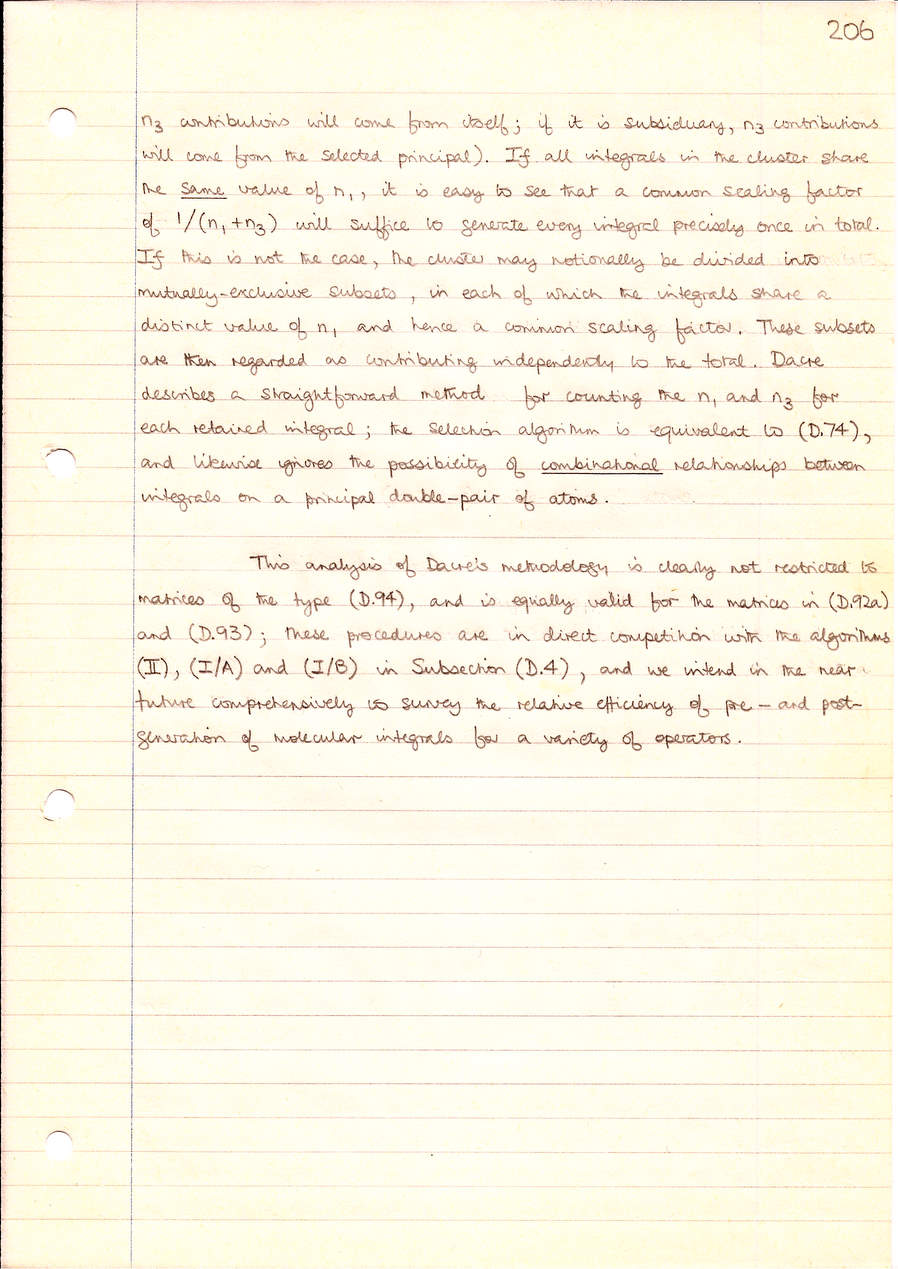 206
n₃ contributions will come from itself; if it is subsiduary, n₃ contributions
will come from the selected principal). If all integrals in the cluster share
the same value of n₁, it is easy to see that a common scaling factor
of 1/(n₁+n₃) will suffice to generate every integral precisely once in total.
If this is not the case, the cluster may notionally be divided into
mutually-exclusive subsets, in each of which the integrals share a
distinct value of n₁ and hence a common scaling factor. These subsets
are then regarded as contributing independently to the total. Dacre
describes a straightforward method for counting the n₁ and n₃ for
each retained integral; the selection algorithm is equivalent to (D.74),
and likewise ignores the possibility of combinational relationships between
integrals on a principal double-pair of atoms.
This analysis of Dacre's methodology is clearly not restricted to
matrices of the type (D.94), and is equally valid for the matrices in (D.92a)
and (D.93); these procedures are in direct competition with the algorithms
(II), (I/A) and (I/B) in Subsection (D.4), and we intend in the near
future comprehensively to survey the relative efficiency of pre- and post-
generation of molecular integrals for a variety of operators.